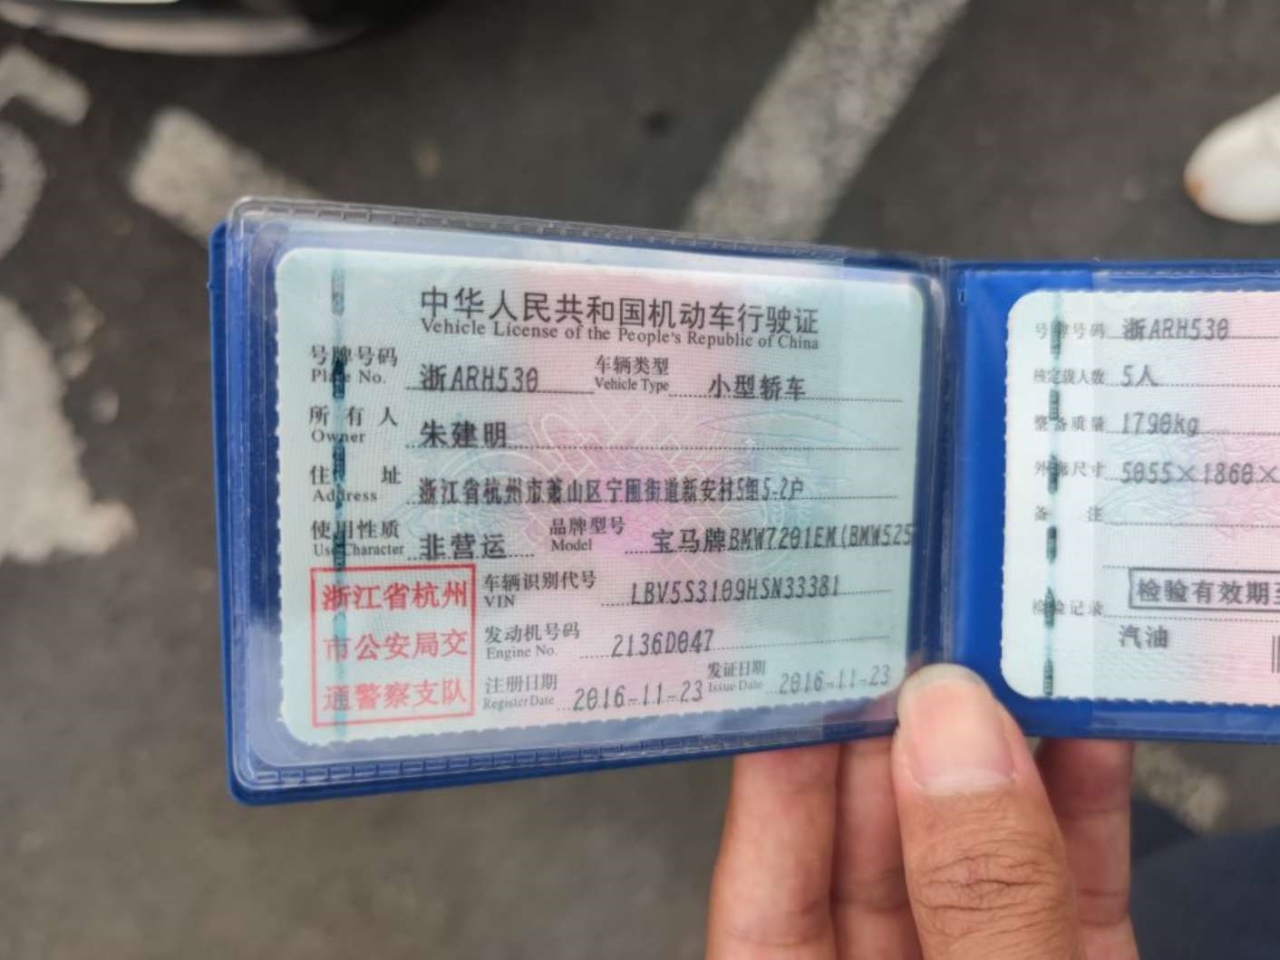 中华人民共和国机动车行驶证
Vehicle License of the People's Republic of China
号牌号码 浙ARH530 车辆类型 小型轿车
Plate No. Vehicle Type
所有人 朱建明
Owner
住址 浙江省杭州市萧山区宁围街道新安村5组5-2户
Address
使用性质 非营运 品牌型号 宝马牌BMW7201EM(BMW525
Use Character Model
浙江省杭州
市公安局交
通警察支队
车辆识别代号 LBV5S3109HSN33381
VIN
发动机号码 2136D047
Engine No.
注册日期 2016-11-23 发证日期 2016-11-23
Register Date Issue Date
号牌号码 浙ARH530
核定载人数 5人
整备质量 1790kg
外廓尺寸 5055×1860×
备注
检验有效期至
检验记录
汽油